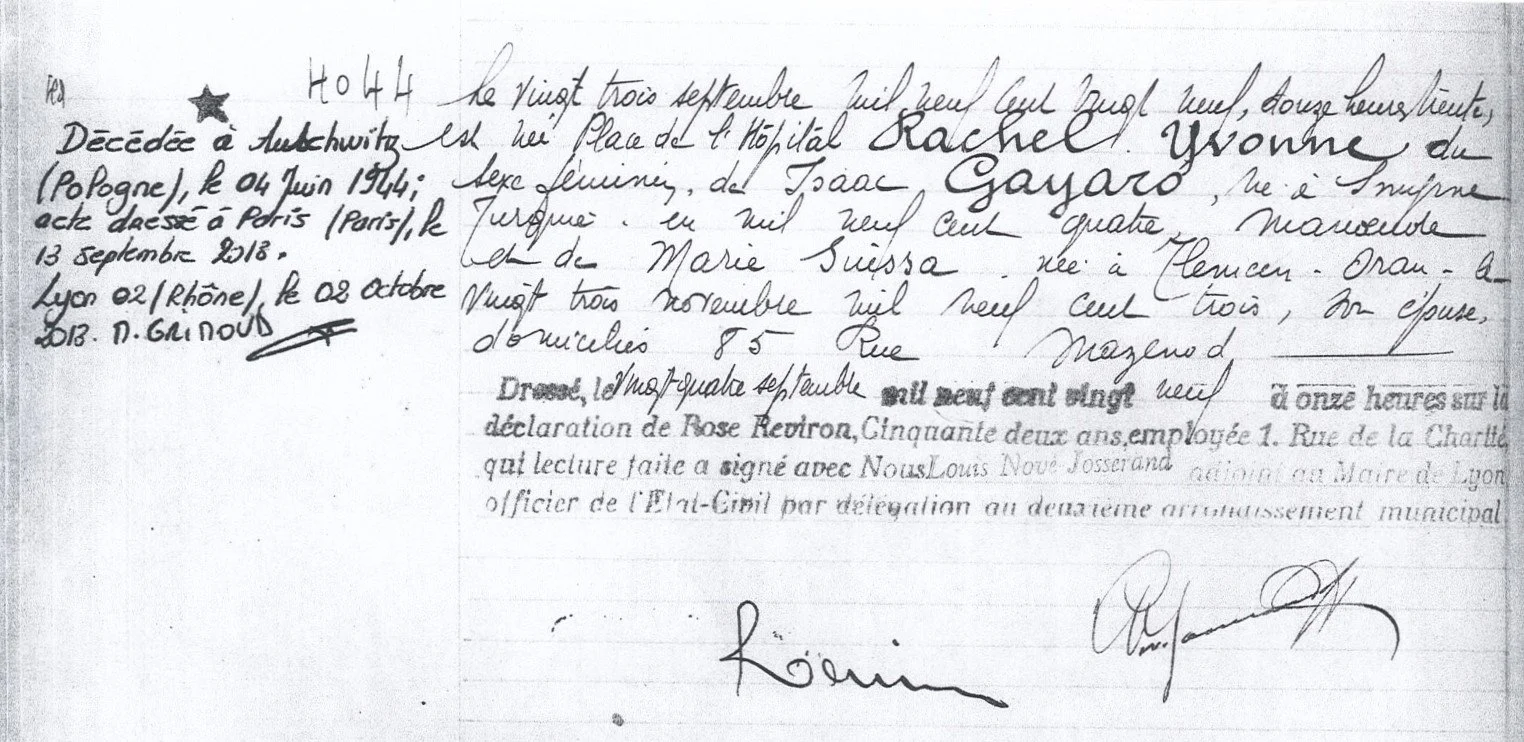 H044
Décédée à Auschwitz
(Pologne), le 04 Juin 1944;
acte dressé à Paris (Paris), le
13 Septembre 2013.
Lyon 02 (Rhône), le 02 Octobre
2013. M. GRIMOUD
Le vingt trois septembre mil neuf cent vingt neuf, douze heures trente,
est née Place de l'Hôpital Rachel Yvonne du
sexe féminin, de Isaac Gayaro, né à Smyrne
Turquie. en mil neuf cent quatre,
et de Marie Suissa. née à Tlemcen - Oran - le
vingt trois novembre mil neuf cent trois, son épouse,
domiciliés 85 Rue Mazenod
Dressé, le vingt-quatre septembre mil neuf cent vingt neuf à onze heures sur la
déclaration de Rose Reviron, Cinquante deux ans, employée 1. Rue de la Charité,
qui lecture faite a signé avec Nous Louis Nové Josserand adjoint au Maire de Lyon
officier de l'Etat-Civil par délégation au deuxième arrondissement municipal